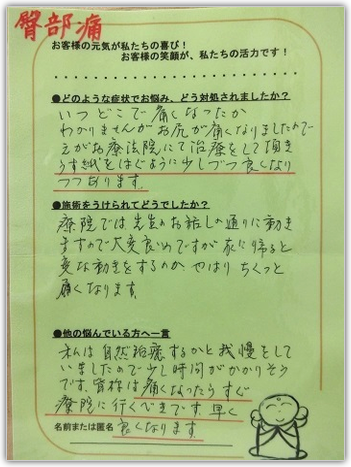 臀部痛
お客様の元気が私たちの喜び！
お客様の笑顔が、私たちの活力です！
●どのような症状でお悩み、どう対処されましたか？
いつどこで痛くなったか
わかりませんがお尻が痛くなりましたので
えがお療法院にて治療をして頂き
うす紙をはぐように少しづつ良くなり
つつあります。
●施術をうけられてどうでしたか？
療院では先生のお話しの通りに動き
ますので大変良いのですが家に帰ると
変な動きをするのかやはりちくっと
痛くなります。
●他の悩んでいる方へ一言
私は自然治癒するかと我慢をして
いましたので少し時間がかかりそう
です。皆様は痛くなったらすぐ
療院に行くべきです。早く
名前または匿名 良くなります。